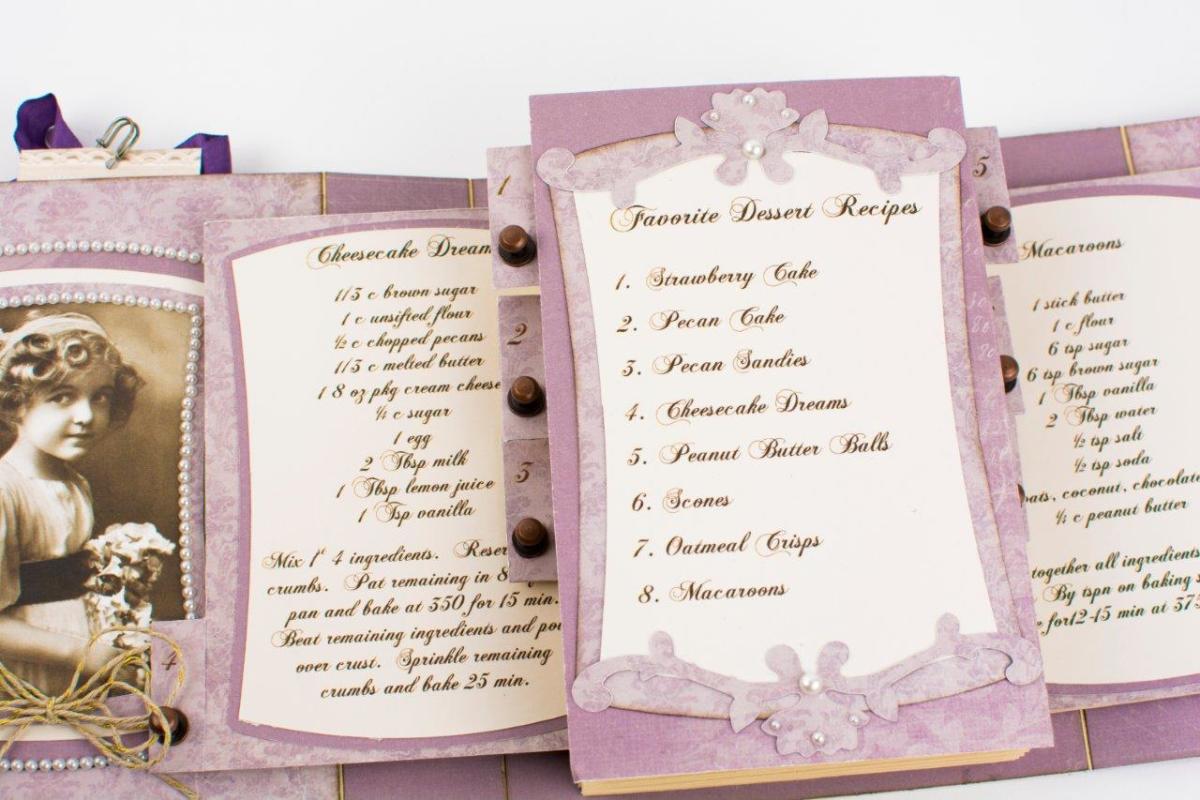 Cheesecake Dream
1/3 c brown sugar
1 c unsifted flour
½ c chopped pecans
1/3 c melted butter
1 8 oz pkg cream cheese
¼ c sugar
1 egg
2 Tbsp milk
1 Tbsp lemon juice
1 Tsp vanilla
Mix 1st 4 ingredients.
crumbs. Pat remaining in 8
pan and bake at 350 for 15 min.
Beat remaining ingredients and
over crust. Sprinkle remaining
crumbs and bake 25 min.
4
1
2
3
Favorite Dessert Recipes
1. Strawberry Cake
2. Pecan Cake
3. Pecan Sandies
4. Cheesecake Dreams
5. Peanut Butter Balls
6. Scones
7. Oatmeal Crisps
8. Macaroons
5
Macaroons
1 stick butter
1 c flour
6 tsp sugar
6 tsp brown sugar
1 Tbsp vanilla
2 Tbsp water
½ tsp salt
½ tsp soda
oats, coconut, chocolate
¼ c peanut butter
together all ingredients
By tspn on baking
for12-15 min at 375